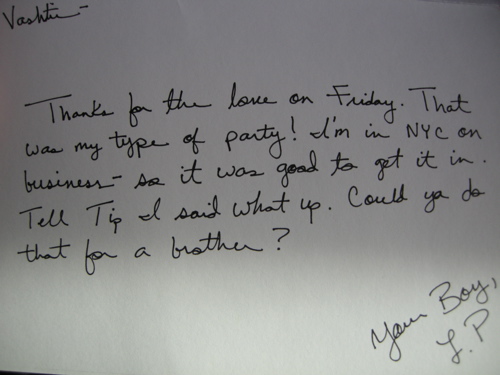 Vashtie-
Thanks for the love on Friday. That
was my type of party! I'm in NYC on
business- so it was good to get it in.
Tell Tip I said what up. Could ya do
that for a brother?
Your Boy,
L.P